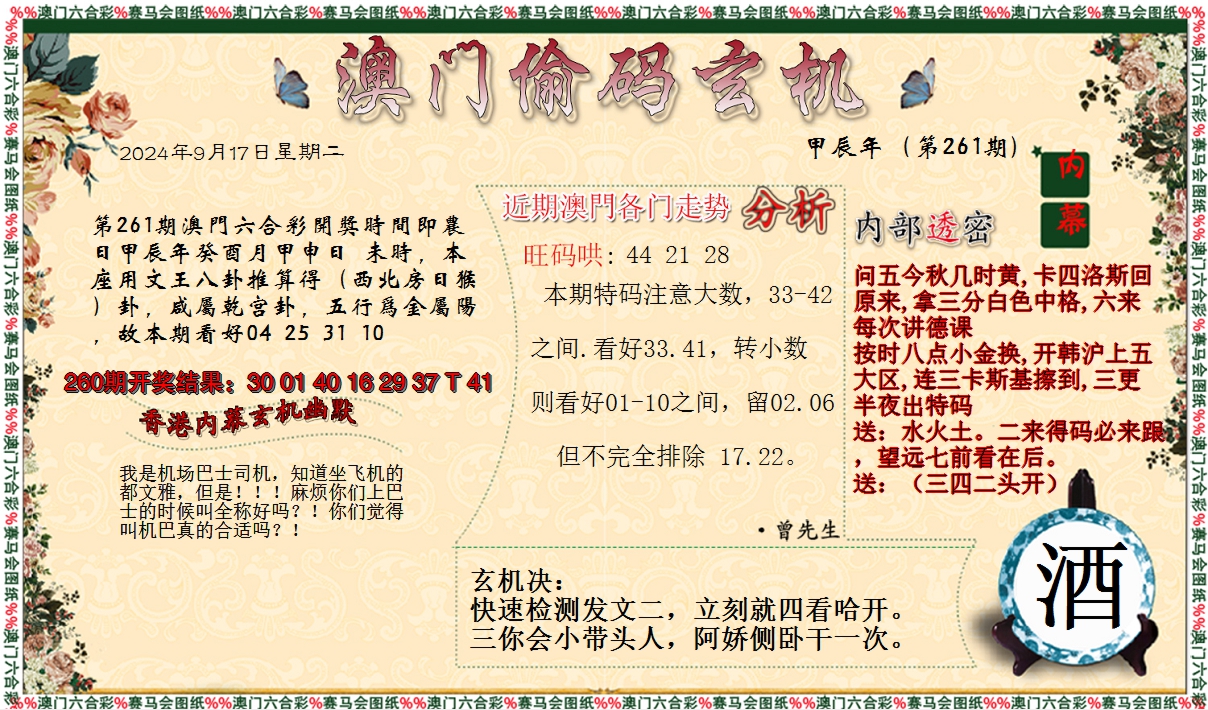 %%澳门六合彩%赛马会图纸%%澳门六合彩%赛马会图纸%%澳门六合彩%赛马会图纸%%澳门六合彩%赛马会图纸%%澳门六合彩%赛马会图纸%%澳门六合彩%赛马会图纸%%
澳门偷码玄机
2024年9月17日星期二
甲辰年（第261期）
内幕
第261期澳門六合彩開獎時間即農
日甲辰年癸酉月甲申日 未時，本
座用文王八卦推算得（西北房日猴
）卦，咸屬乾宫卦，五行爲金屬陽
，故本期看好04 25 31 10
260期开奖结果：30 01 40 16 29 37 T 41
香港内幕玄机幽默
我是机场巴士司机，知道坐飞机的
都文雅，但是！！！麻烦你们上巴
士的时候叫全称好吗？！你们觉得
叫机巴真的合适吗？！
近期澳門各门走势 分析
旺码哄: 44 21 28
本期特码注意大数，33-42
之间.看好33.41，转小数
则看好01-10之间，留02.06
但不完全排除 17.22。
·曾先生
内部透密
问五今秋几时黄,卡四洛斯回
原来,拿三分白色中格,六来
每次讲德课
按时八点小金换,开韩沪上五
大区,连三卡斯基擦到,三更
半夜出特码
送：水火土。二来得码必来跟
，望远七前看在后。
送：（三四二头开）
玄机决：
快速检测发文二，立刻就四看哈开。
三你会小带头人，阿娇侧卧干一次。
酒
%%澳门六合彩%赛马会图纸%%澳门六合彩%赛马会图纸%%澳门六合彩%赛马会图纸%%澳门六合彩%赛马会图纸%%澳门六合彩%赛马会图纸%%澳门六合彩%赛马会图纸%%